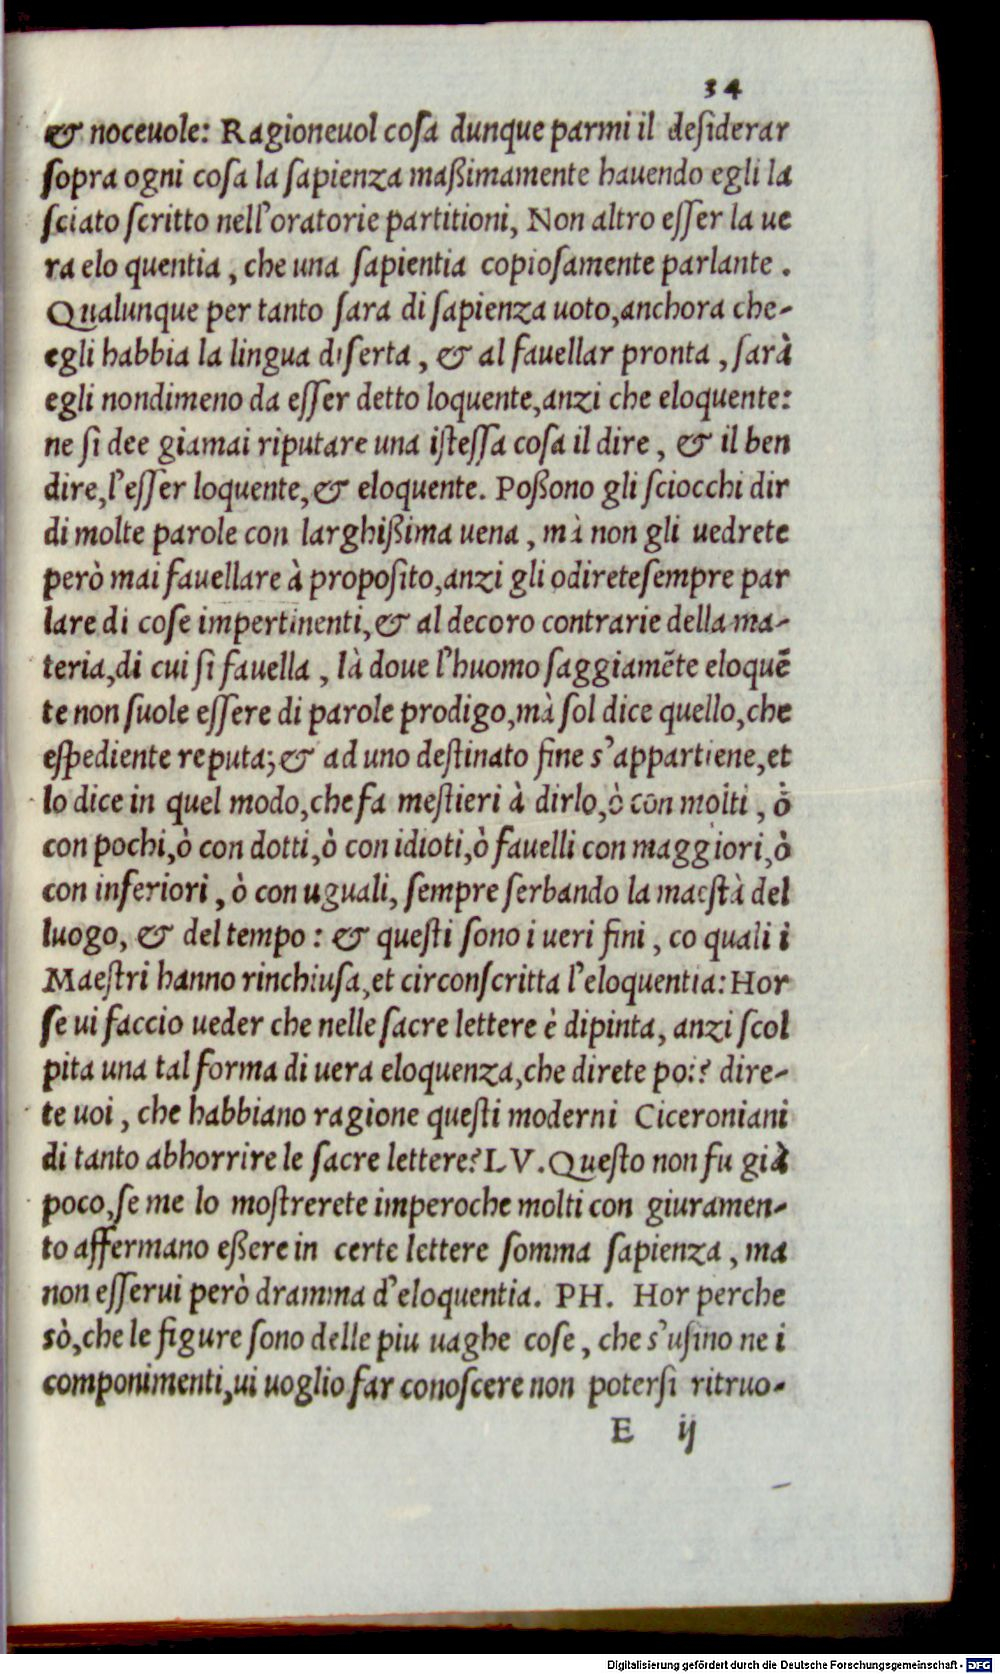 34
& noceuole: Ragioneuol cosa dunque parmi il desiderar
sopra ogni cosa la sapienza maßimamente hauendo egli la
sciato scritto nell'oratorie partitioni, Non altro esser la ue
ra elo quentia, che una sapientia copiosamente parlante.
Qualunque per tanto sara di sapienza uoto, anchora che-
egli habbia la lingua diserta, & al fauellar pronta, sarà
egli nondimeno da esser detto loquente, anzi che eloquente:
ne si dee giamai riputare una istessa cosa il dire, & il ben
dire, l'esser loquente, & eloquente. Poßono gli sciocchi dir
di molte parole con larghißima uena, mà non gli uedrete
però mai fauellare à proposito, anzi gli odirete sempre par
lare di cose impertinenti, & al decoro contrarie della ma-
teria, di cui si fauella, là doue l'huomo saggiamẽte eloquẽ
te non suole essere di parole prodigo, mà sol dice quello, che
espediente reputa; & ad uno destinato fine s'appartiene, et
lo dice in quel modo, che fa mestieri à dirlo, ò con molti, ò
con pochi, ò con dotti, ò con idioti, ò fauelli con maggiori, ò
con inferiori, ò con uguali, sempre serbando la maestà del
luogo, & del tempo: & questi sono i ueri fini, co quali i
Maestri hanno rinchiusa, et circonscritta l'eloquentia: Hor
se ui faccio ueder che nelle sacre lettere è dipinta, anzi scol
pita una tal forma di uera eloquenza, che direte poi? dire-
te uoi, che habbiano ragione questi moderni Ciceroniani
di tanto abhorrire le sacre lettere? LV. Questo non fu già
poco, se me lo mostrerete imperoche molti con giuramen-
to affermano eßere in certe lettere somma sapienza, ma
non esserui però dramma d'eloquentia. PH. Hor perche
sò, che le figure sono delle piu uaghe cose, che s'usino ne i
componimenti, ui uoglio far conoscere non potersi ritruo-
E ij
Digitalisierung gefördert durch die Deutsche Forschungsgemeinschaft - DFG